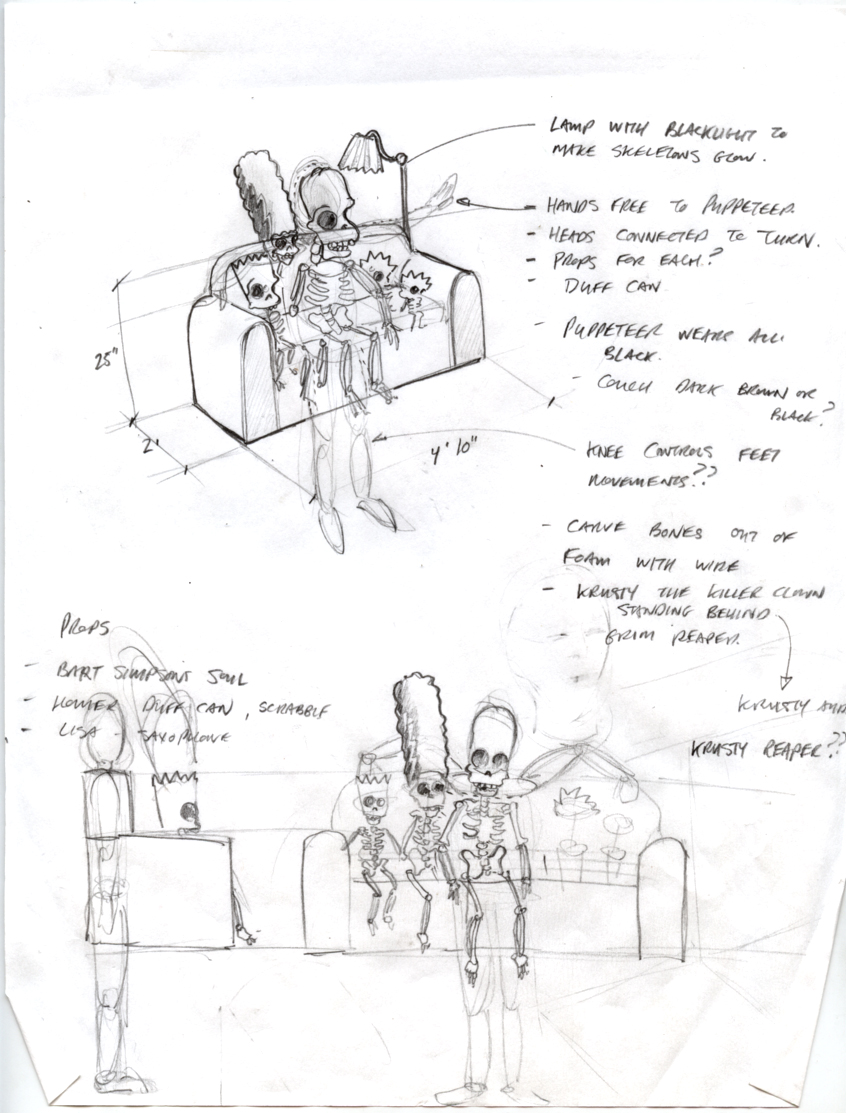 LAMP WITH BLACKLIGHT TO
MAKE SKELETONS GLOW.
- HANDS FREE TO PUPPETEER.
- HEADS CONNECTED TO TURN.
- PROPS FOR EACH?
- DUFF CAN
- PUPPETEER WEARS ALL
BLACK.
- COUCH DARK BROWN OR
BLACK?
25"
2'
4' 10"
KNEE CONTROLS FEET
MOVEMENTS??
- CARVE BONES OUT OF
FOAM WITH WIRE
- KRUSTY THE KILLER CLOWN
STANDING BEHIND
GRIM REAPER.
KRUSTY AND
KRUSTY REAPER??
PROPS
- BART SIMPSONS SOUL
- HOMER DUFF CAN, SCRABBLE
- LISA - SAXOPHONE